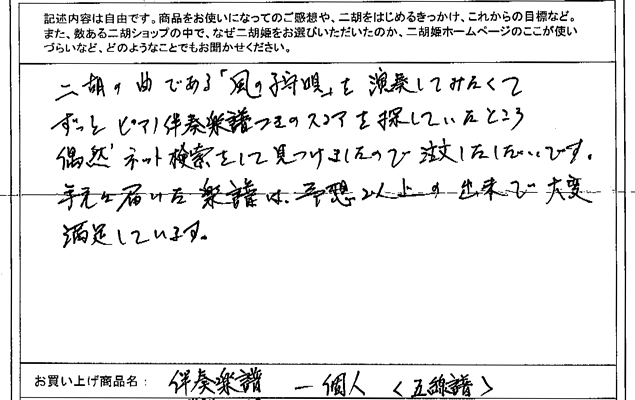 記述内容は自由です。商品をお使いになってのご感想や、二胡をはじめるきっかけ、これからの目標など。
また、数ある二胡ショップの中で、なぜ二胡姫をお選びいただいたのか、二胡姫ホームページのここが使い
づらいなど、どのようなことでもお聞かせください。
二胡の曲である「風の子守唄」を演奏してみたくて
ずっとピアノ伴奏楽譜つきのスコアを探していたところ
偶然ネット検索をして見つけましたので注文したしだいです。
手元に届いた楽譜は、予想以上の出来で大変
満足しています。
お買い上げ商品名: 伴奏楽譜 一個人 <五線譜>